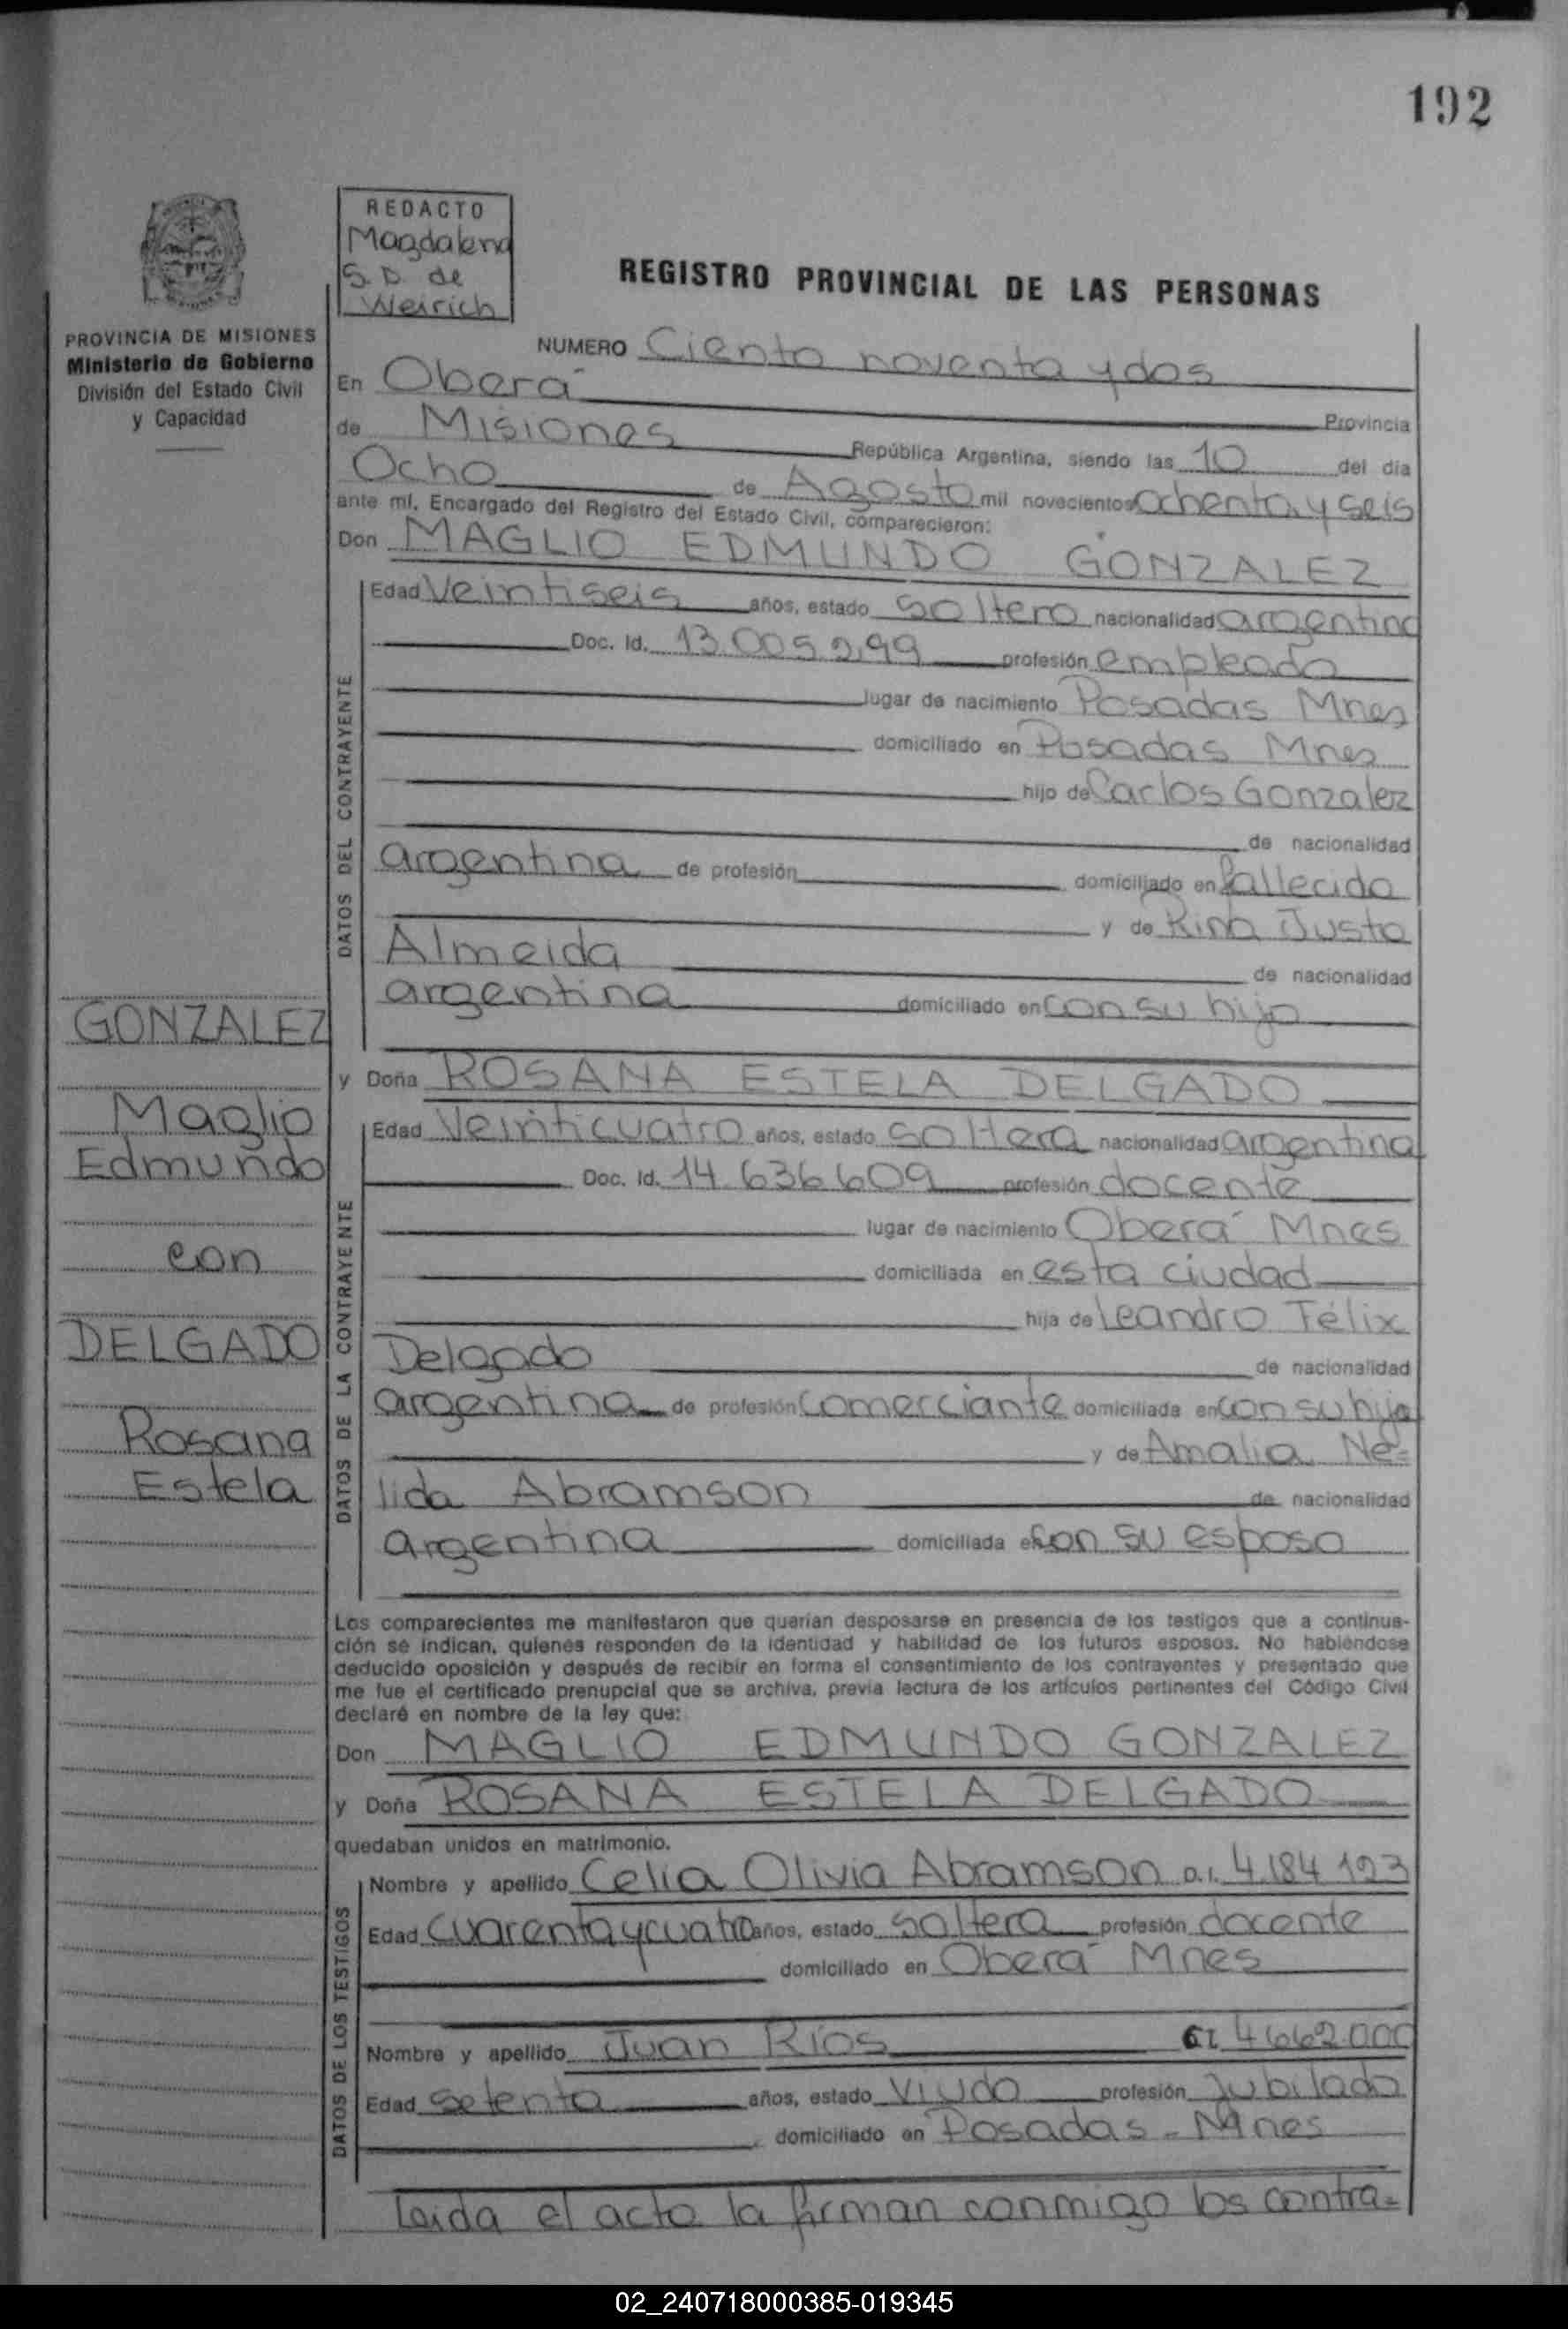 192
REDACTO
Magdalena
S. D. de
Weirich
REGISTRO PROVINCIAL DE LAS PERSONAS
PROVINCIA DE MISIONES
Ministerio de Gobierno
División del Estado Civil
y Capacidad
NUMERO Ciento noventa y dos
En Oberá
Provincia
de Misiones República Argentina, siendo las 10 del día
Ocho de Agosto mil novecientos ochenta y seis
ante mí, Encargado del Registro del Estado Civil, comparecieron:
Don MAGLIO EDMUNDO GONZALEZ
DATOS DEL CONTRAYENTE
Edad Veintiseis años, estado soltero nacionalidad argentina
Doc. Id. 13.005.299 profesión empleado
lugar de nacimiento Posadas Mnes
domiciliado en Posadas Mnes
hijo de Carlos Gonzalez
de nacionalidad
argentina de profesión domiciliado en fallecido
y de Rina Justa
Almeida de nacionalidad
argentina domiciliado en con su hijo
y Doña ROSANA ESTELA DELGADO
DATOS DE LA CONTRAYENTE
Edad Veinticuatro años, estado soltera nacionalidad argentina
Doc. Id. 14.636.609 profesión docente
lugar de nacimiento Oberá Mnes
domiciliada en esta ciudad
hija de Leandro Félix
Delgado de nacionalidad
argentina de profesión comerciante domiciliada en con su hija
y de Amalia Né=
lida Abramson de nacionalidad
argentina domiciliada en con su esposo
GONZALEZ
Maglio
Edmundo
con
DELGADO
Rosana
Estela
Los comparecientes me manifestaron que querían desposarse en presencia de los testigos que a continua-
ción se indican, quienes responden de la identidad y habilidad de los futuros esposos. No habiéndose
deducido oposición y después de recibir en forma el consentimiento de los contrayentes y presentado que
me fue el certificado prenupcial que se archiva, previa lectura de los artículos pertinentes del Código Civil
declaré en nombre de la ley que:
Don MAGLIO EDMUNDO GONZALEZ
y Doña ROSANA ESTELA DELGADO
quedaban unidos en matrimonio.
DATOS DE LOS TESTIGOS
Nombre y apellido Celia Olivia Abramson D.I. 4.184.193
Edad cuarenta y cuatro años, estado soltera profesión docente
domiciliado en Oberá Mnes
Nombre y apellido Juan Ríos CI 4662.000
Edad setenta años, estado viudo profesión Jubilado
domiciliado en Posadas - Mnes
Leida el acto la firman conmigo los contra=
02_240718000385-019345